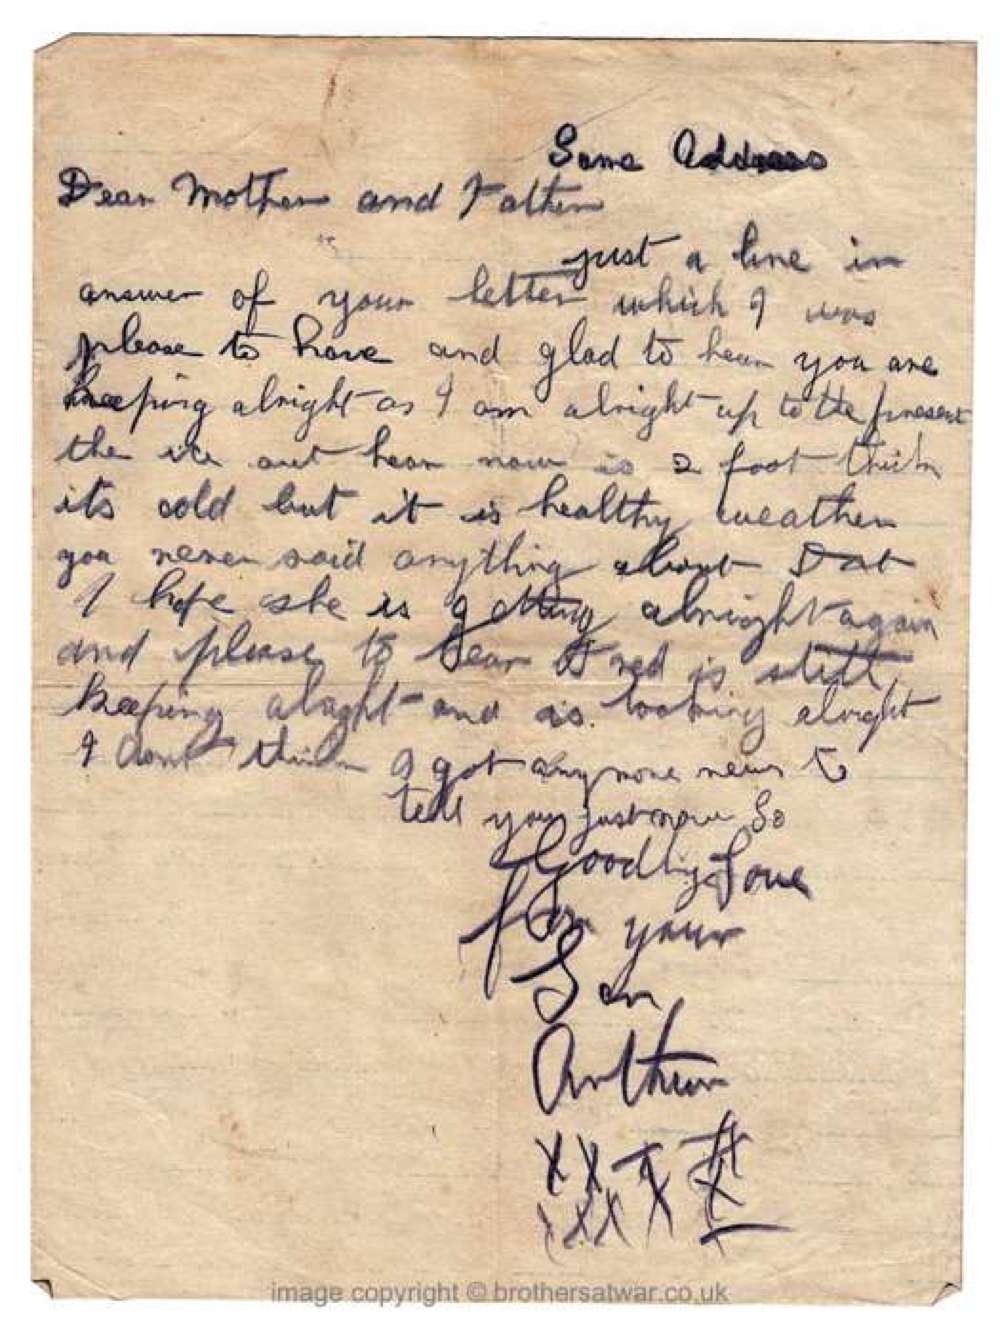 Same Address
Dear Mother and Father
just a line in
answer of your letter which I was
please to have and glad to hear you are
keeping alright as I am alright up to the present
the ice out hear now is 2 foot thick
its cold but it is healthy weather
you never said anything about Dat
I hope she is getting alright again
and please to hear Fred is still
keeping alright and is looking alright
I dont think I got any more news to
tell you just now So
Goodbye Love
from your
Son
Arthur
XXXX
XXXXX
image copyright © brothersatwar.co.uk